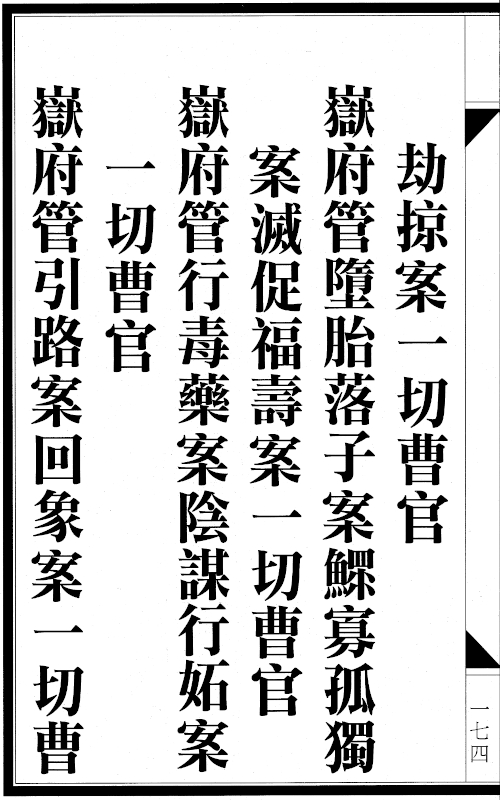 劫掠案一切曹官
嶽府管墮胎落子案鰥寡孤獨
案滅促福壽案一切曹官
嶽府管行毒藥案陰謀行妬案
一切曹官
嶽府管引路案回象案一切曹
一七四